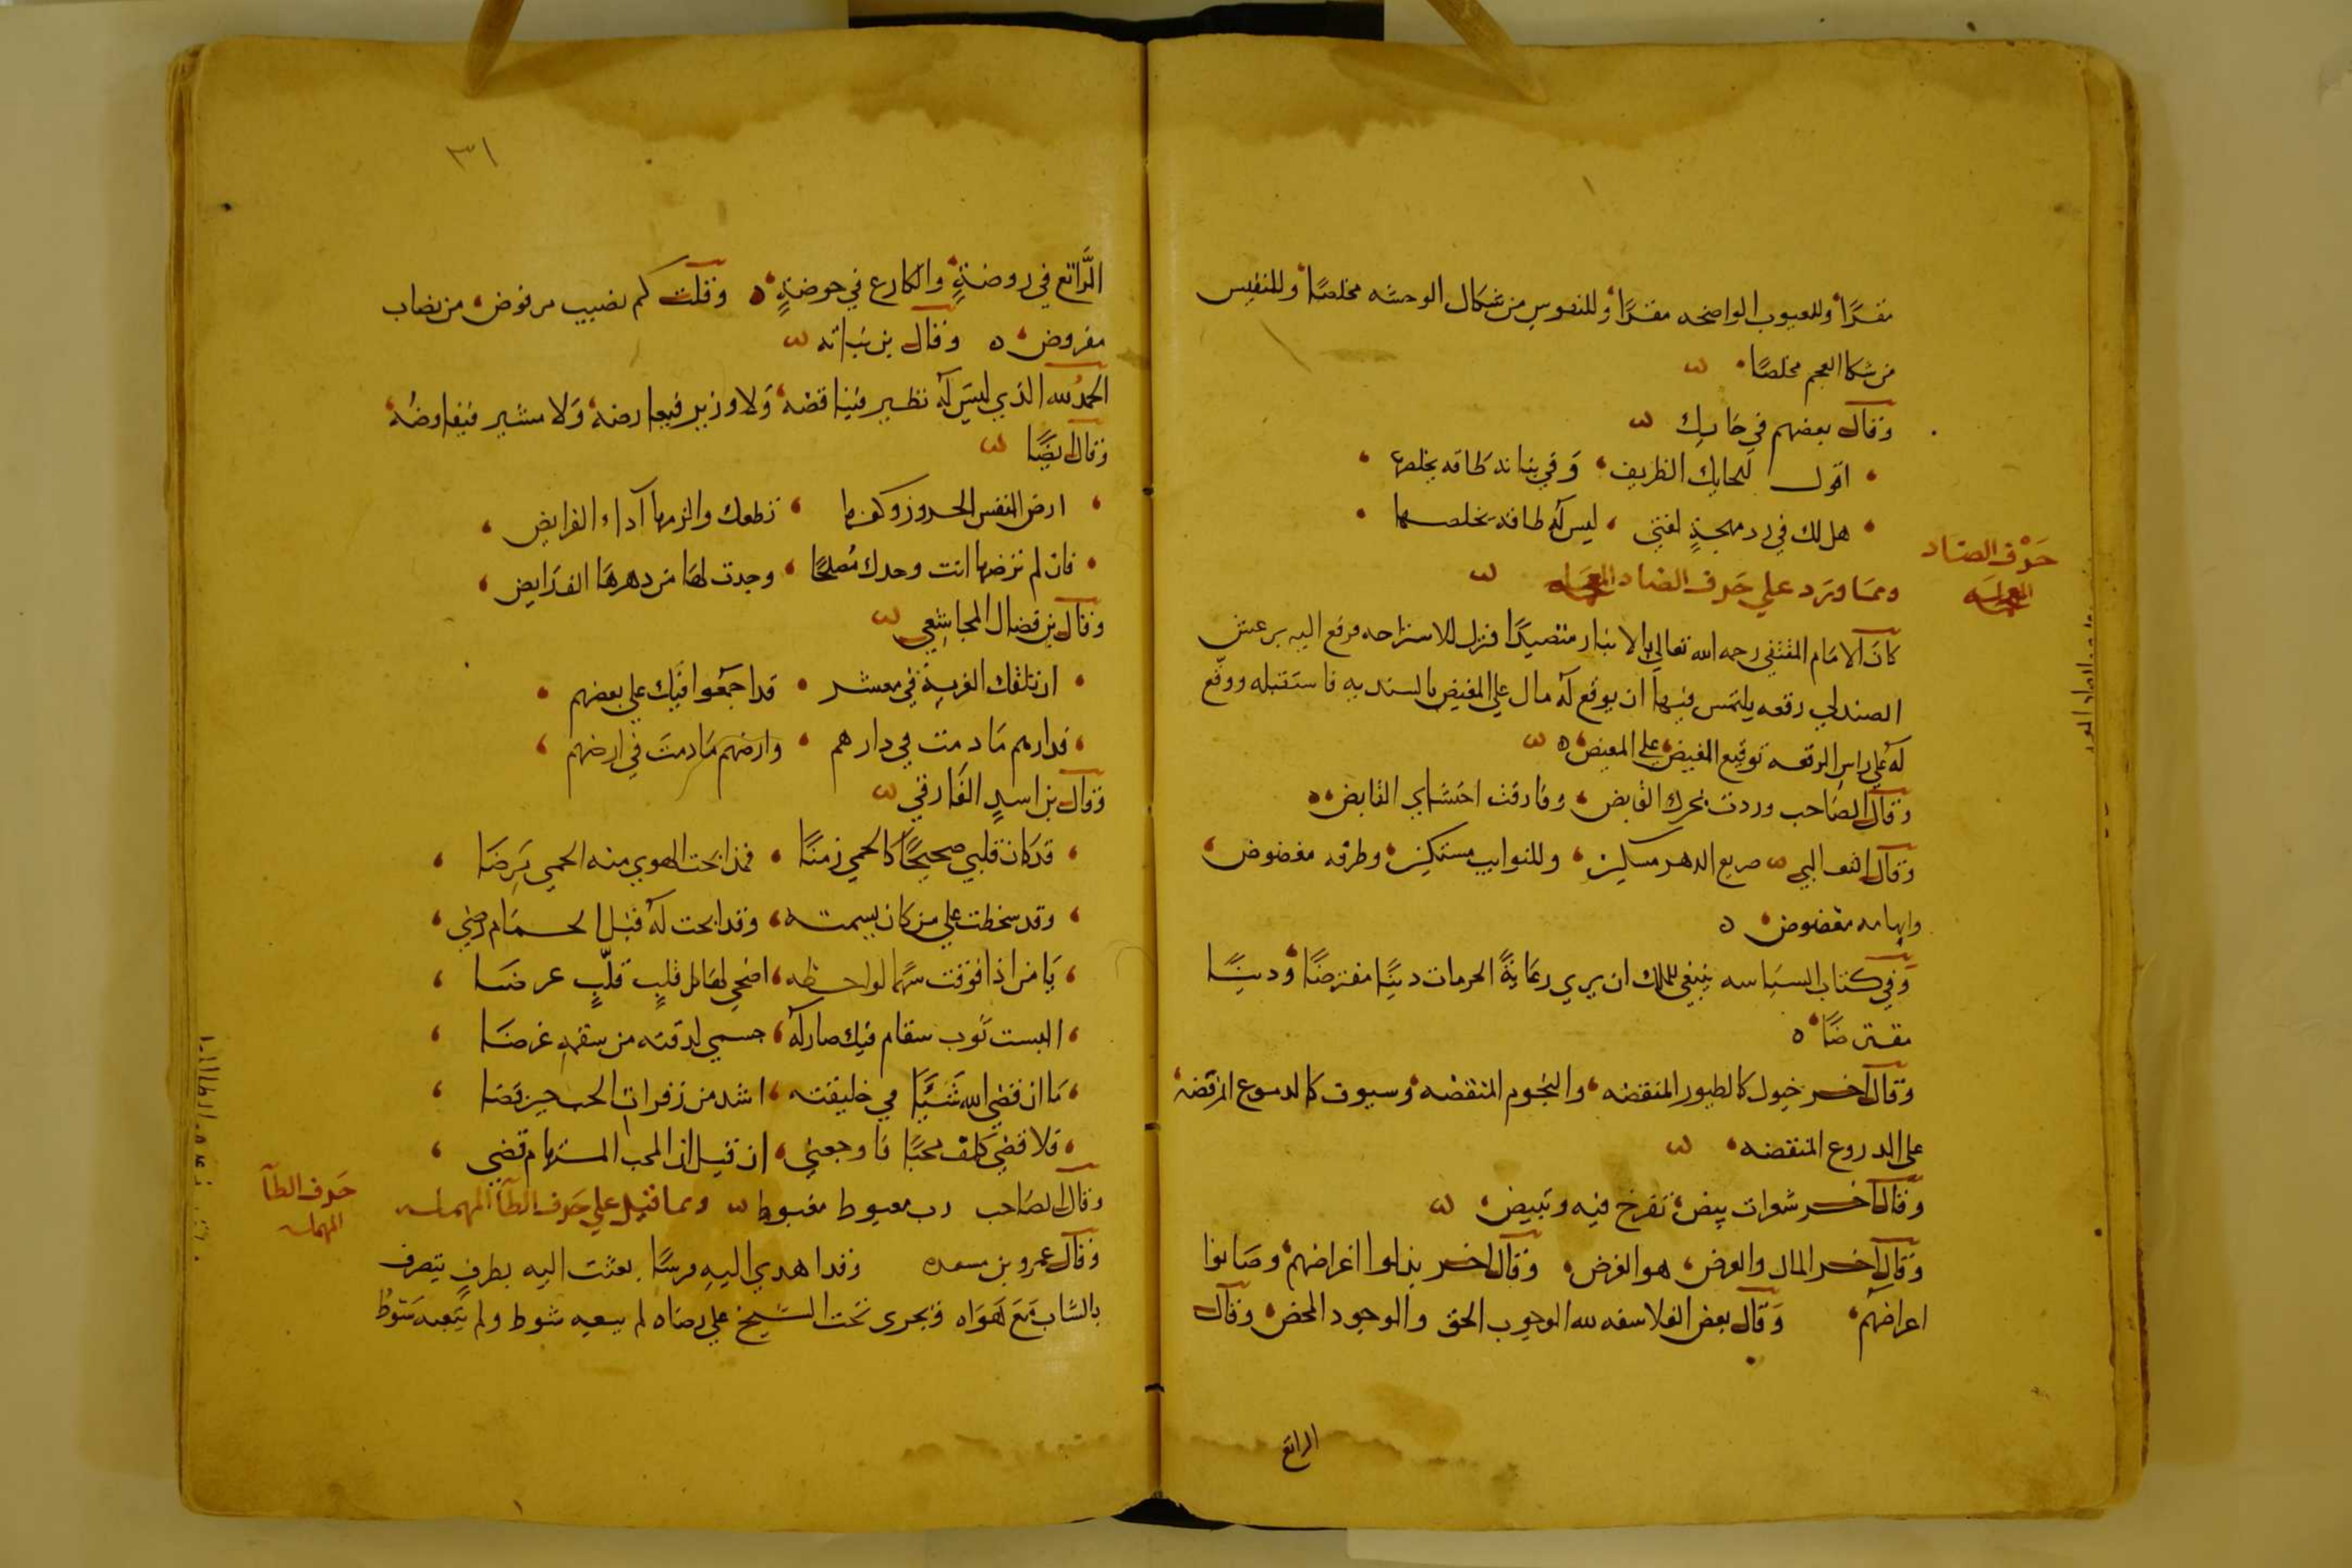 مقرًا وللعيوب الواضحه مقرًا وللنفوس من شكال الوحشه مخلصًا وللنفيس
من شكا العجم مخلصًا
وقال بعضهم في حايك
اقول للحايك الظريف وفي بنانه طاقه يخلصها
هل لك في رد مهجةٍ لفتى ليس له طاقة يخلصها
حرف الضاد
المعجمه
ومما ورد علي حرف الضاد المعجمه
كان الامام المقتفي رحمه الله تعالى بالانبار متصيدًا فنزل للاستراحه فرفع اليه
الصندلي رقعه يلتمس فيها ان يوقع له مال علي المغيض بالسنديه فاستقبله ووقّع
له علي راس الرقعه توقيع الفيض علي المغيض
وقال الصاحب وردت بحرك الفايض وفارقت احتشاي القابض
وقال الثعالبي صريع الدهر مسكين وللنوايب مستكين وطرفه مغضوض
وابهامه معضوض
وفي كتاب السياسه ينبغي للملك ان يري رعاية الحرمات دينًا مفترضًا ودينًا
مقترضًا
وقال اخر خيول كالطيور المنقضه والنجوم المنقضه وسيوف كالدموع المرفضه
على الدروع المنقضه
وقال اخر شعرات بيض تفرخ فيه وتبيض
وقال اخر المال والعرض هو الغرض وقال اخر بذلوا اغراضهم وصانوا
اعراضهم وقال بعض الفلاسفه لله الوجوب الحق والوجود المحض وقال
الراتع
٣١
الراتع في روضةٍ والكارع في حوضةٍ وقلت كم نصيب مرفوض من نصاب
مفروض وقال بن نباته
الحمد لله الذي ليس له نظير فيناقضه ولا وزير فيعارضه ولا مشير فيفاوضه
وقال ايضًا
ارض النفس تطعك والزمها آداء الفرايض
فان لم ترضها انت وحدك مُصلحًا وجدت لها من دهرها الف رايض
وقال بن فضال المجاشعي
ان تلقك الغربة في معشر قد اجمعوا فيك علي بعضهم
فدارهم مادمت في دارهم وارضهم مادمت في ارضهم
وقال بن اسدٍ الفارقي
قد كان قلبي صحيحًا كالحمي زمنًا فمذ ابحت الهوي منه الحمي مَرِضَا
وقد سخطت علي من كان يسمته وقد ابحت له قبل الحمام رضي
يا من اذا فوقت سهمًا لواحظه اضحي لها كل قلبٍ قلّبٍ غرضا
البست ثوب سقام فيك صار له جسمي لدقته من سقمه عرضا
ما ان قضي الله شيئًا في خليقته اشد من زفرات الحب حين قضا
فلا قضي كلف نحبًا فاوجعني ان قيل ان المحب المستهام قضي
وقال الصاحب رب مغبوط مغبوط ومما قيل علي حرف الطآ المهمله
حرف الطآ
المهمله
وقال عمرو بن مسعده وقد اهدي اليه فرسًا بعثت اليه بطرفٍ يتصرف
بالشاب مع هواه ويجرى تحت الشيخ علي رضاه لم يسعيه شوط ولم يتعبه سَوطُ